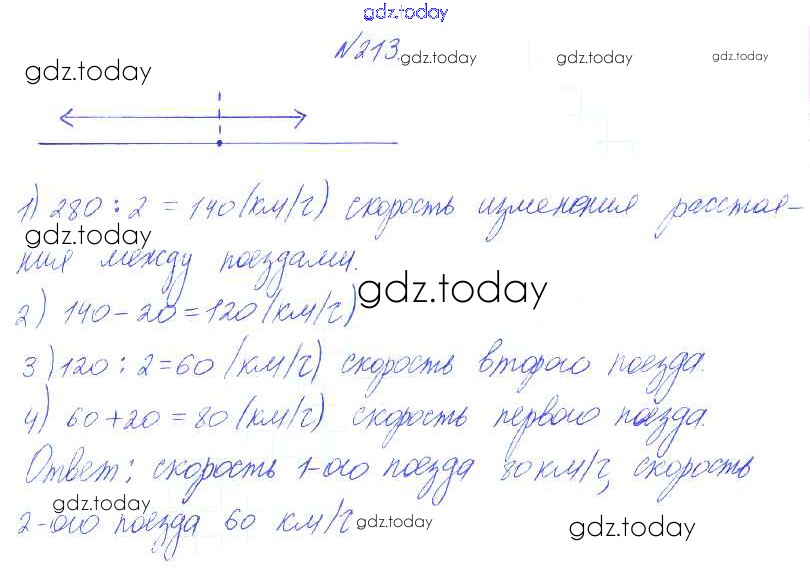 gdz.today
№213.
gdz.today gdz.today
gdz.today
1) 280 : 2 = 140 (км/ч) скорость изменения расстоя-
gdz.today
ния между поездами.
gdz.today
2) 140 - 20 = 120 (км/ч)
3) 120 : 2 = 60 (км/ч) скорость второго поезда.
4) 60 + 20 = 80 (км/ч) скорость первого поезда.
Ответ: скорость 1-ого поезда 80 км/ч, скорость
gdz.today
2-ого поезда 60 км/ч.
gdz.today gdz.today